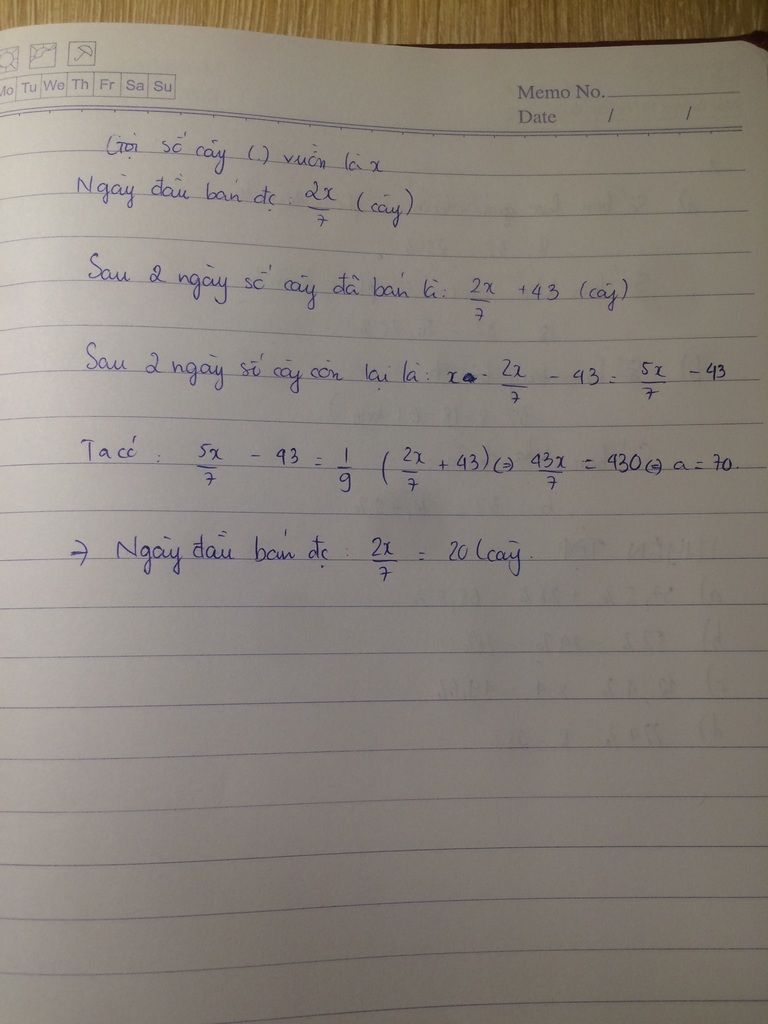 Mo Tu We Th Fr Sa Su
Memo No.
Date / /
Gọi số cây (.) vườn là x
Ngày đầu bán đc : 2x/7 (cây)
Sau 2 ngày số cây đã bán là: 2x/7 + 43 (cây)
Sau 2 ngày số cây còn lại là: x - 2x/7 - 43 = 5x/7 - 43
Ta có : 5x/7 - 43 = 1/9 (2x/7 + 43) (=) 43x/7 = 430 (=) a = 70.
=> Ngày đầu bán đc : 2x/7 = 20 (cây.